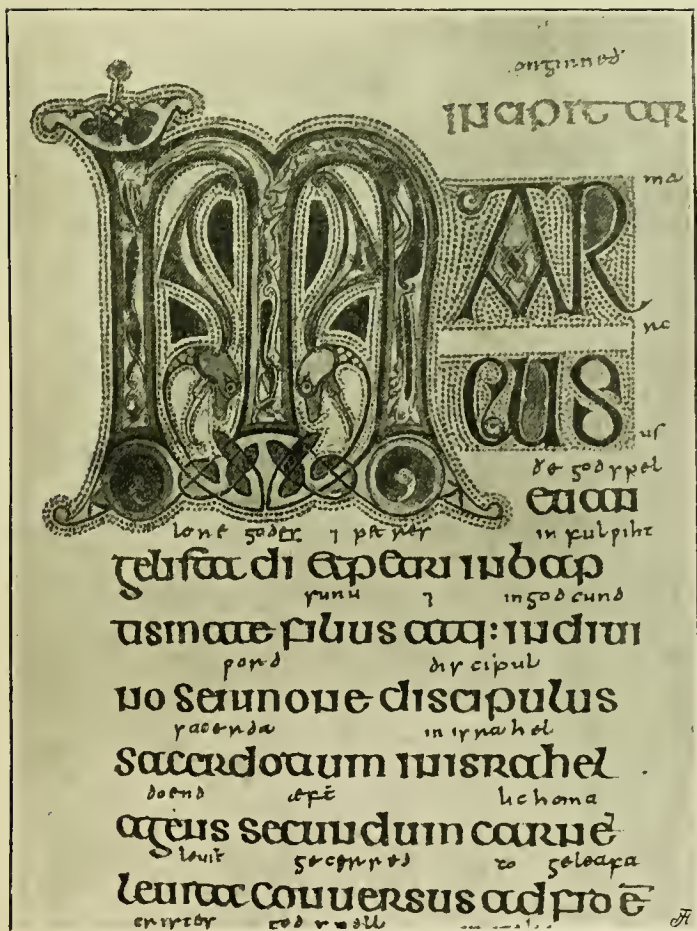 onginneð
incipit ar
ma
MAR
rc
CUS
us
ðe godspel
euan
godes 7 petres in fulpiht
gelista di et petri in bap
sunu 7 in godcund
tismate filius atq: in diui
word discipul
no sermone discipulus
sacerda in israhel
sacerdotium in israhel
doend æft lichoma
agens secundum carnē
leuit gecerred to geleafa
leuita conuersus ad fidē